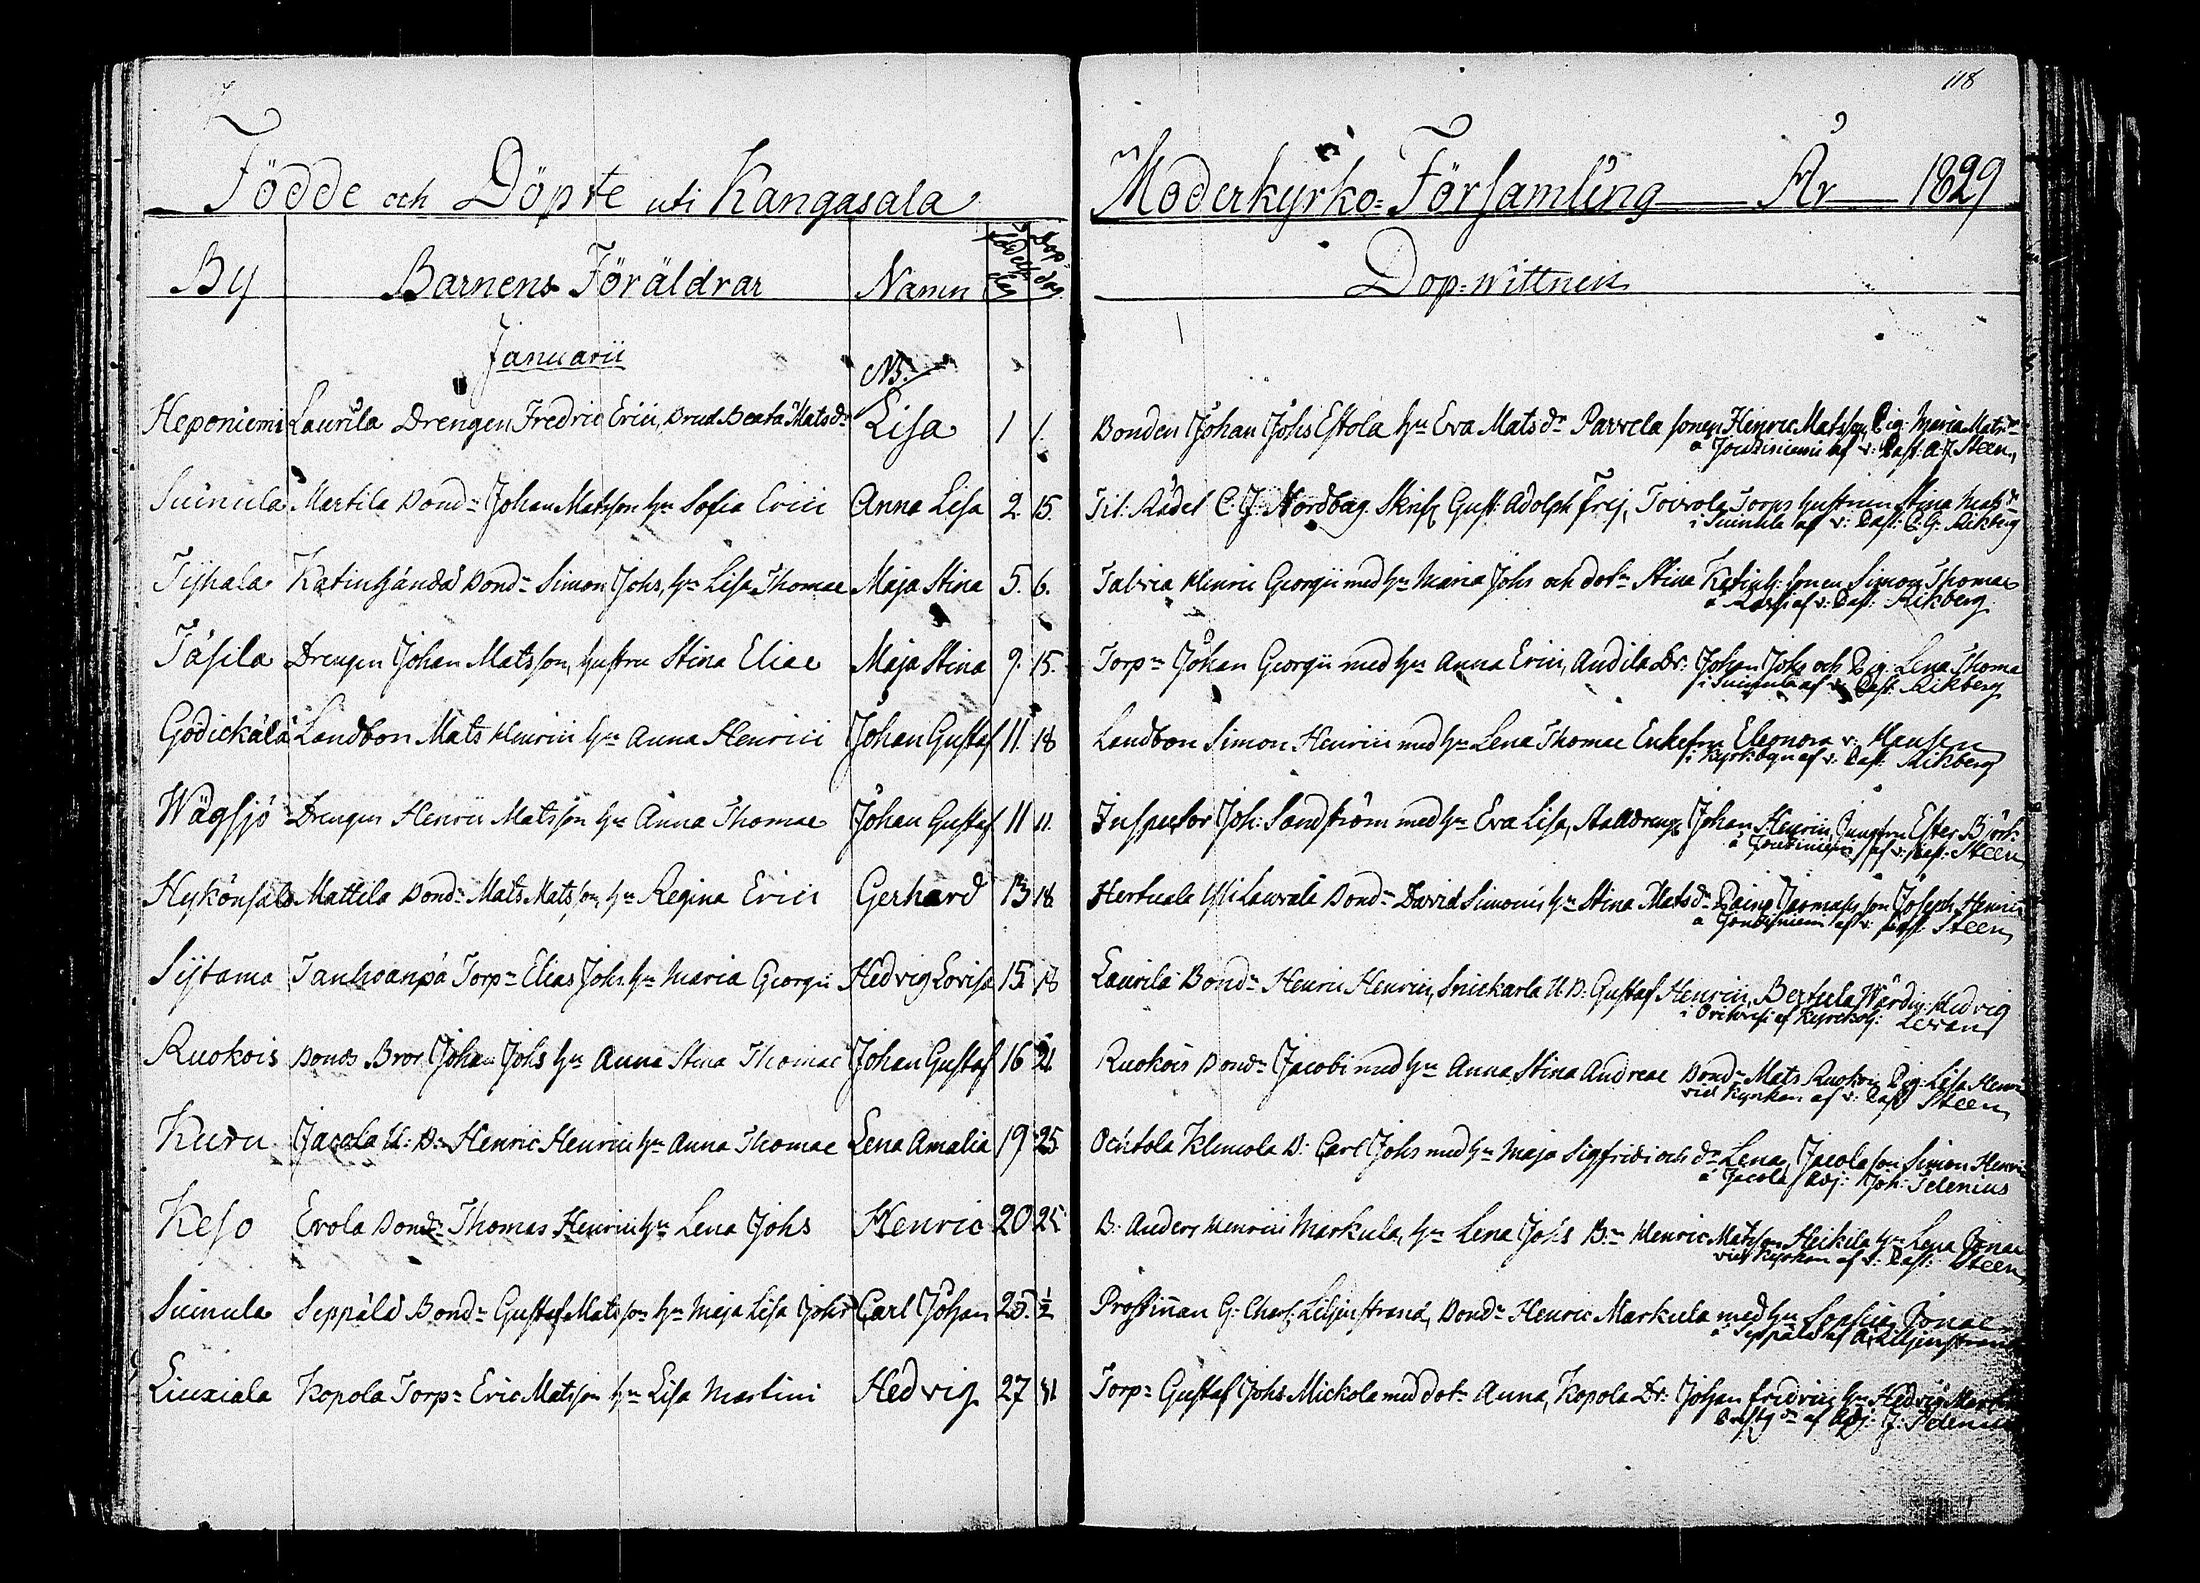 118
Födde och Döpte uti Kangasala Moderkyrko=Församling År 1829
By Barnens Föräldrar Namn Födelse dag Dop dag Dop=Wittnen
Januarii
NB.
Heponiemi Laurila Drengen Fredric Erici, Brud Beata Matsdr Lisa 1 1. Bonden Johan Johs Eskola hu Eva Matsdr Parvela sonen Henric Matsson Pig. Maria Matsdr
af v: Past: A J Steen,
Suinula Martila Bond: Johan Matsson hu Sofia Erici Anna Lisa 2. 15. Tit. Rådet C. J. Nordbeg Skrif Gust: Adolph Frej, Toivola Torps hustrun Stina Matsdr
i Suinula af v: Past: C. G. Rikberg
Tijhala Bond: Simon Johs, hu Lisa Thomae Maja Stina 5. 6. Henric Georgii med hu Maria Johs och dotr Stina sonen Simon Thomae
af v: Past: Rikberg
Täsila Drengen Johan Matsson, hustru Stina Eliae Maja Stina 9. 15. Torpr Johan Georgii med hu Anna Erici, Andila Dr: Johan Johs och Pig: Lena Thomae
i Suinula af v: Past: Rikberg
Godickala Landbon Mats Henrici hu Anna Henrici Johan Gustaf 11. 18 Landbon Simon Henrici med hu Lena Thomae Enkefru Eleonora v: Hausen
i Kyrkobyn af v: Past: Rikberg
Wägsjö Drengen Henric Matsson hu Anna Thomae Johan Gustaf 11 11. Inspector Joh: Sandström med hu Eva Lisa, Stalldreng Johan Henrici, Jungfru Ester Björk:
af v: Past: Steen,
Mattila Bond: Mats Matsson, hu Regina Erici Gerhard 13 18 Bond: David Simonis hu Stina Matsdr son Joseph Henrici
af v: Past: Steen,
Sijtama Torpr Elias Johs hu Maria Georgii Hedvig Lovisa 15. 18 Laurila Bond: Henric Henrici, Snickarla U. B: Gustaf Henrici, Bertula Wärdin: Hedvig
af Kyrckoh: Levan
Ruokois Bonds Bror Johan Johs hu Anna Stina Thomae Johan Gustaf 16 21. Ruokois Bond: Jacobi med hu Anna Stina Andreae Bond: Mats Ruokois Pig: Lisa Henrici
vid Kyrkan af v: Past Steen,
Kuru Jacola U: B: Henric Henrici hu Anna Thomae Lena Amalia 19 25 Klemola B: Carl Johs med hu Maja Sigfridi och dr Lena, Jacola son Simon Henrici
å Jacola Adj: Joh: Telenius
Keso Erola Bond: Thomas Henrici hu Lena Johs Henric 20 25 B: Anders Henrici Markula, hu Lena Johs B:n Henric Matsson Heikila hu Lena Jonae
vid Kyrkan af v: Past: Steen,
Suinula Seppälä Bond: Gustaf Matsson hu Maja Lisa Johs Carl Johan 25. 1/2 Prostinnan G: Charl: Liljenstrand, Bond: Henric Markula med hu Sophia Jonae
i Seppälä af A: Liljenstrand
Liuxiala Kopola Torp: Eric Matsson hu Lisa Martini Hedvig 27 31 Torp: Gustaf Johs Mickola med dotr Anna, Kopola Dr: Johan Fredrici hu Hedvig
af Adj: J: Telenius